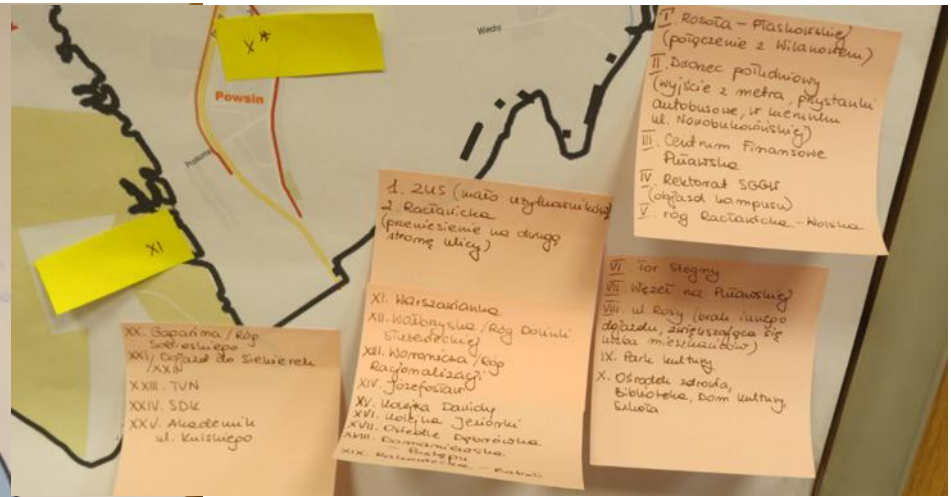 X*
Powsin
XI
I. Rosoła – Płaskowickiej
(połączenie z Wilanowem)
II. Dworzec południowy
(wyjście z metra, przystanki
autobusowe, w kierunku
ul. Nowobukowińskiej)
III. Centrum Finansowe
Puławska
IV Rektorat SGGW
(objazd kampusu)
V. róg Racławicka – Wołoska
1. ZUS (mało użytkowników)
2. Racławicka
(przeniesienie na drugą
stronę ulicy)
VI. Tor Stegny
VII. Węzeł na Puławskiej
VIII. ul. Rosy (brak innego
dojazdu, zwiększająca się
liczba mieszkańców)
IX. Park kultury
X. Ośrodek zdrowia,
Biblioteka, Dom kultury,
Szkoła
XI. Warszawianka
XII. Wałbrzyska / Róg Dolinki
Służewieckiej
XIII. Woronicza / Róg
Racjonalizacji
XIV. Józefosław
XV. Kolejka Dawidy
XVI. Kolejka Jeziorki
XVII. Osiedle Dąbrówka
XVIII. Domaniewska
– Postępu
XIX. Rakowiecka –
XX. Gagarina / Róg
Sobieskiego
XXI / Dojazd do Siekierek
/ XXII
XXIII. TVN
XXIV. SDK
XXV. Akademik
ul. Kulskiego